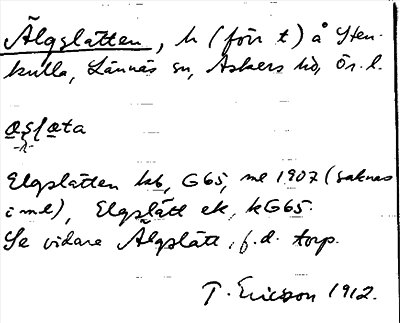 Älgslätten, h (förr t) å Sten-
kulla, Lännäs sn, Askers hd, Ör. l.
Elgslätten hb, G65, me 1907 (saknas
i ml), Elgslätt ek, kG65.
Se vidare Älgslätt, f.d. torp.
T. Ericsson 1912.